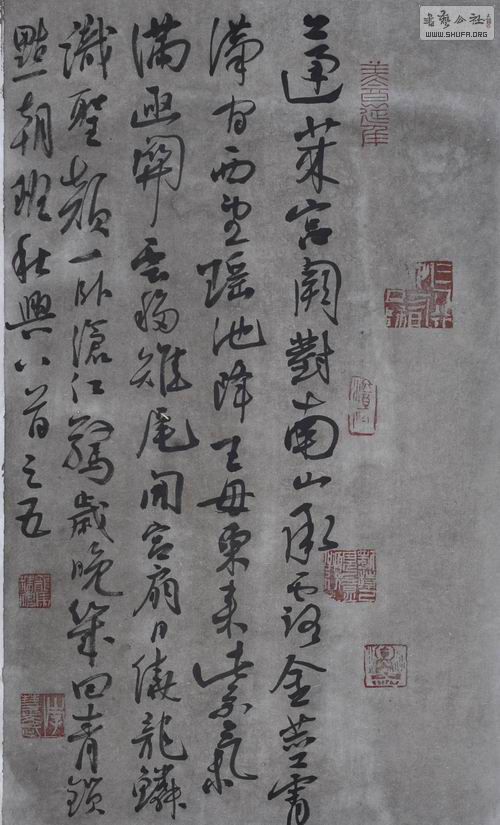 蓬萊宮闕對南山承露金莖霄
漢間西望瑤池降王母東來紫氣
滿函關雲移雉尾開宮扇日繞龍鱗
識聖顏一臥滄江驚歲晚幾回青鎖
點朝班秋興八首之五
書藝公社
WWW.SHUFA.ORG